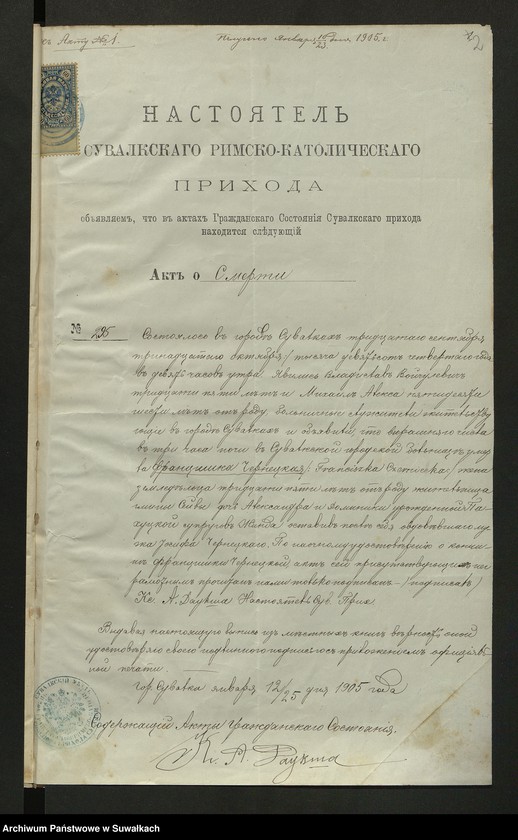 къ Акту № 1.
Получено Января 10/23 дня 1905 г.
2
НАСТОЯТЕЛЬ
СУВАЛКСКАГО РИМСКО-КАТОЛИЧЕСКАГО
ПРИХОДА
объявляемъ, что въ актахъ Гражданскаго Состоянія Сувалкскаго прихода
находится слѣдующій
Актъ о Смерти
№ 295
Состоялось въ городѣ Сувалкахъ тридцатаго сентября
тринадцатаго октября / тысяча девятьсотъ четвертаго года
въ девять часовъ утра. Явились Владиславъ Войтулевичъ
тридцати пяти лѣтъ и Михаилъ Алекса пятидесяти
шести лѣтъ отъ роду больничные служители жительству
ющіе въ городѣ Сувалкахъ и объявили, что вчерашняго числа
въ три часа ночи въ Сувалкской городской больницѣ умер
ла Францишка Чернецкая / Franciszka Czerniecka / жена
земледѣльца тридцати пяти лѣтъ отъ роду жительница
дочь Александра и Доминики урожденной Па
супруговъ оставивъ послѣ себя овдовѣвшаго му
жа Іосифа Чернецкаго. По личномъ удостовѣреніи о кончи
нѣ Францишки Чернецкой актъ сей присутствующимъ не
грамотнымъ прочитанъ нами только подписанъ / подписалъ /
Кс. А. Даукша Настоятель Сув. Прих.
настоящую выпись изъ мѣстныхъ книгъ вѣрность оной
удостовѣряю своею подписью приложеніемъ
ной печати.
Гор. Сувалки января 12/25 дня 1905 года
Содержащій Акты Гражданскаго Состоянія.
Кс. А. Даукша
Archiwum Państwowe w Suwałkach